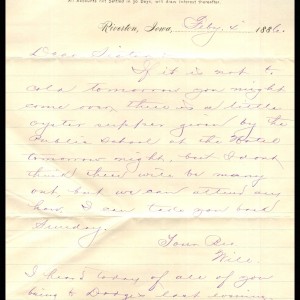 All accounts not settled in 30 Days, will draw interest thereafter.
Riverton, Iowa, Feby 5 1886.
Dear Sister
If it is not to
cold tomorrow you might
come over, there is a little
oyster supper given by the
Public School at the Hotel
tomorrow night, but I dont
think there will be many
out, but we can attend any
how, I can take you back
Sunday.
Your Bro.
Will
I heard today of all of you
being to Dodges last evening